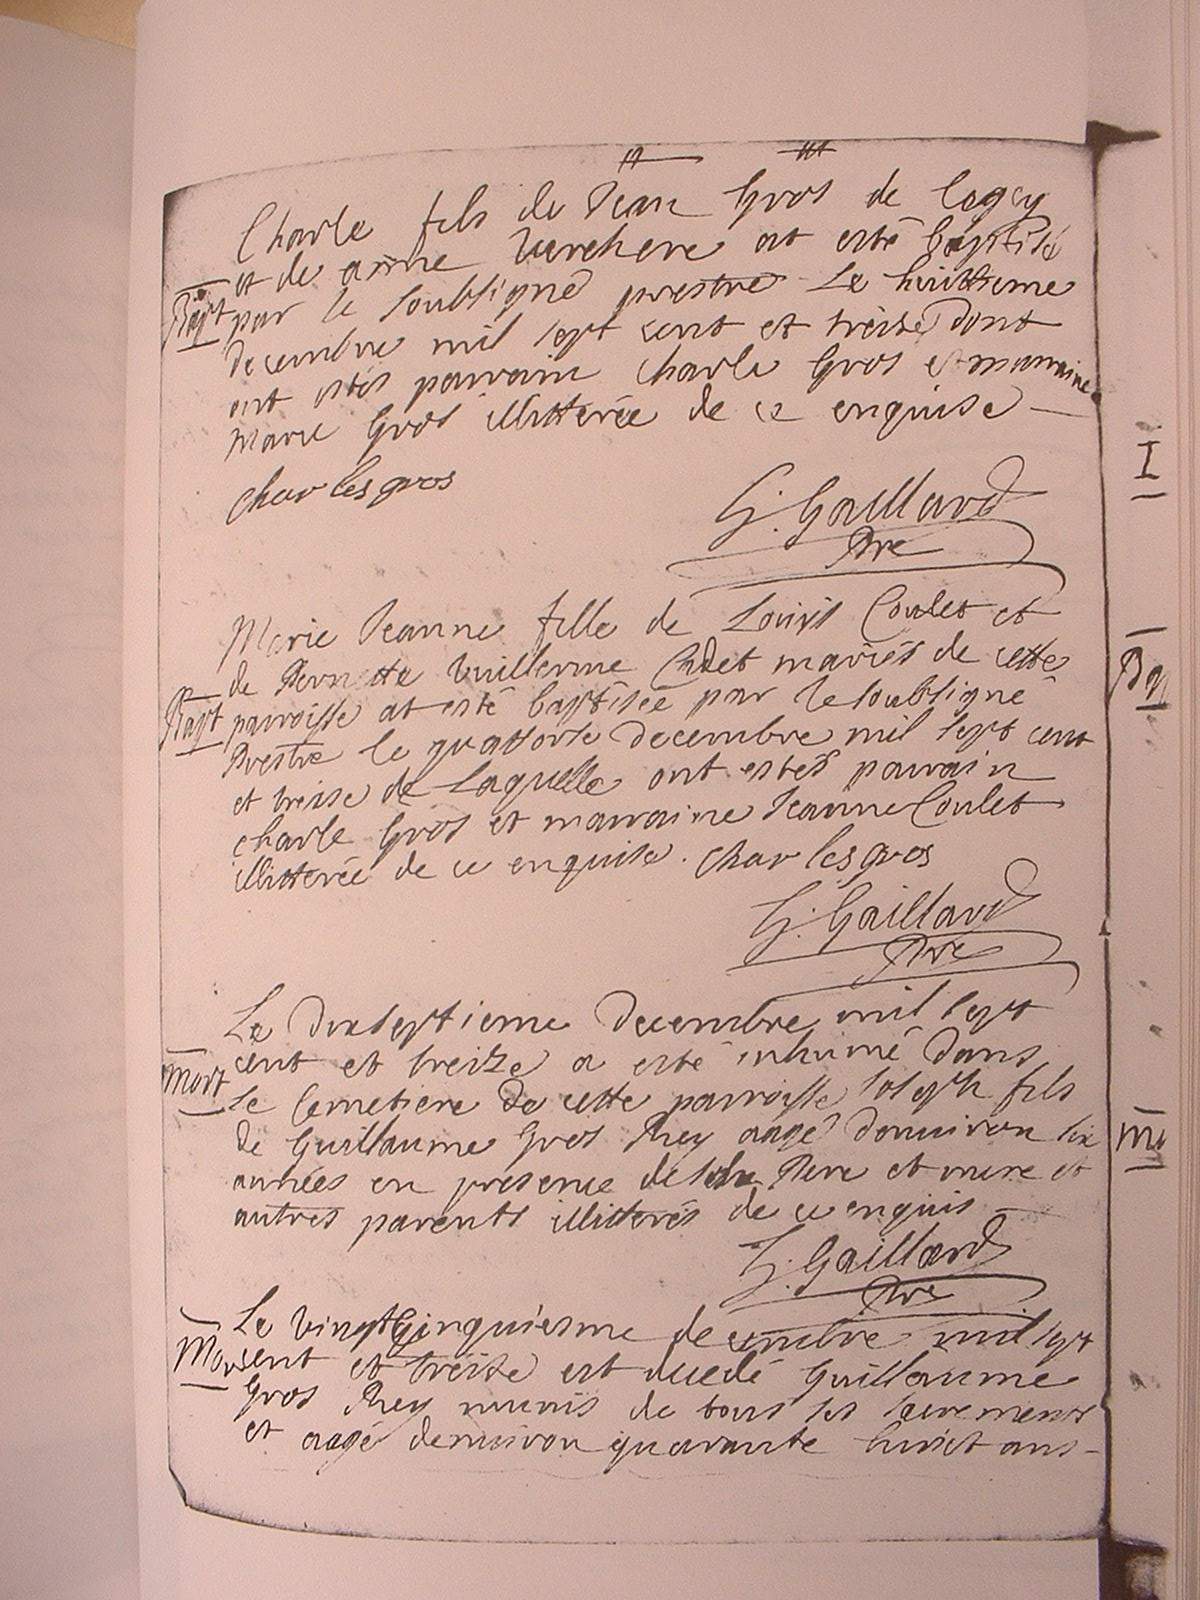 Charle fils de Jean Gros de
et de anne Verchere at esté baptisé
Bapt par le soubsigné prestre Le huittieme
decembre mil sept cent et treise dont
ont estés parrain charle Gros et marraine
Marie Gros illitterée de ce enquise
charles gros
G. Gaillard
Pre
Marie Jeanne fille de Louis Coulet et
de Pernette Vuillerme Cadet mariés de cette
Bapt parroisse at esté baptisée par le soubsigné
Prestre le quattorse decembre mil sept cent
et treise de Laquelle ont estés parrain
charle Gros et marraine Jeanne Coulet
illitterée de ce enquise. charles gros
G. Gaillard
Pre
Le dixseptieme decembre mil sept
cent et treize a esté inhumé dans
Mort Le Cemetiere de cette parroisse Joseph fils
de Guillaume Gros Rey aagé denuiron six
années en presence de Pere et mere et
autres parents illitterés de ce enquis
G. Gaillard
Pre
Le vingtcinquiesme decembre mil sept
Mort cent et treise est decedé Guillaume
Gros Rey munis de tous les sacrements
et aagé denuiron quarante huict ans
I
Bap
Mo